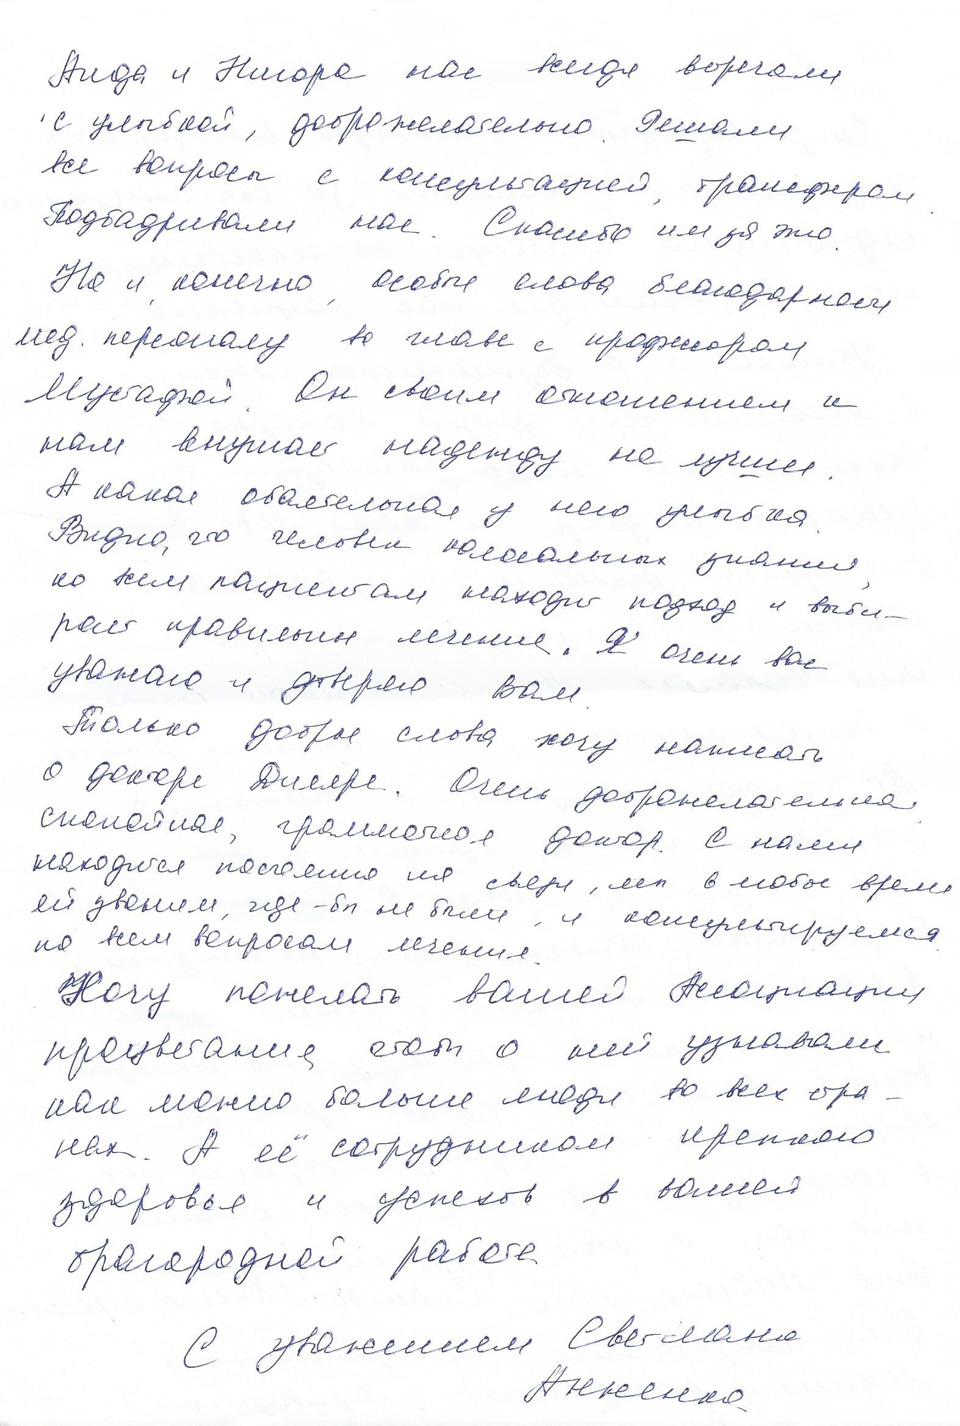 Аида и Нигора нас всегда встречали
с улыбкой, доброжелательно. Решали
все вопросы с консультацией, трансфером.
Подбадривали нас. Спасибо им за это.
Но и, конечно, особые слова благодарности
мед. персоналу во главе с профессором
Мустафой. Он своим отношением к
нам внушает надежду на лучшее.
А какая обаятельная у него улыбка.
Видно, что человек колосальных знаний,
ко всем пациентам находит подход и выби-
рает правильное лечение. Я очень вас
уважаю и доверяю вам.
Только добрые слова хочу написать
о докторе Диляре. Очень доброжелательная,
спокойная, грамотная доктор. С нами
находится постоянно на связи, мы в любое время
ей звоним, где-бы не были, и консультируемся
по всем вопросам лечения.
Хочу пожелать вашей Ассоциации
процветания, чтобы о ней узнавали
как можно больше людей во всех стра-
нах. А её сотрудникам крепкого
здоровья и успехов в вашей
благородной работе
С уважением Светлана